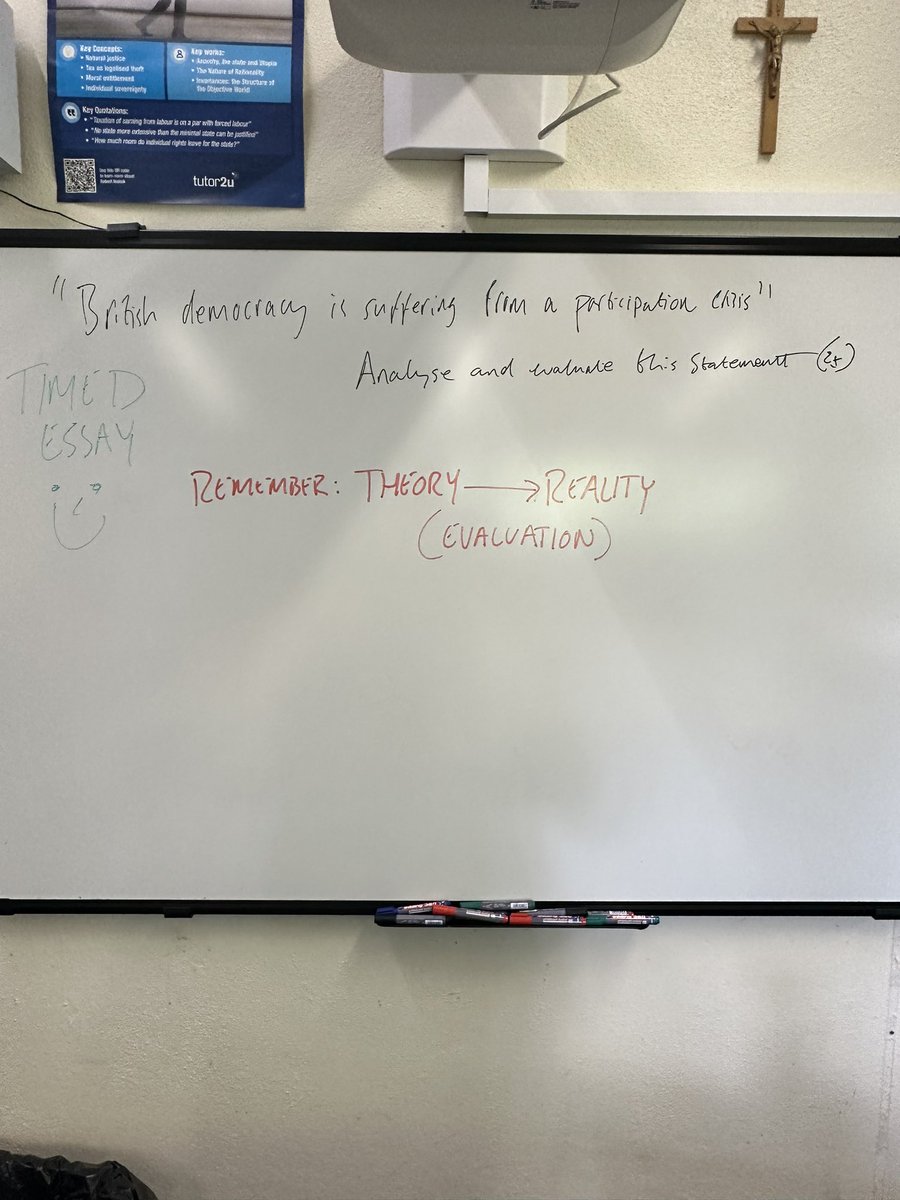 Key Concepts:
• Natural justice
• Tax as legalised theft
• Moral entitlement
• Individual sovereignty
Key works:
• Anarchy, the state and Utopia
• The Nature of Rationality
• Invariances: the Structure of
the Objective World
Key Quotations:
• "Taxation of earning from labour is on a par with forced labour"
• "No state more extensive than the minimal state can be justified"
• "How much room do individual rights leave for the state?"
tutor2u
"British democracy is suffering from a participation crisis"
Analyse and evaluate this statement (25)
TIMED
ESSAY
REMEMBER: THEORY → REALITY
(EVALUATION)